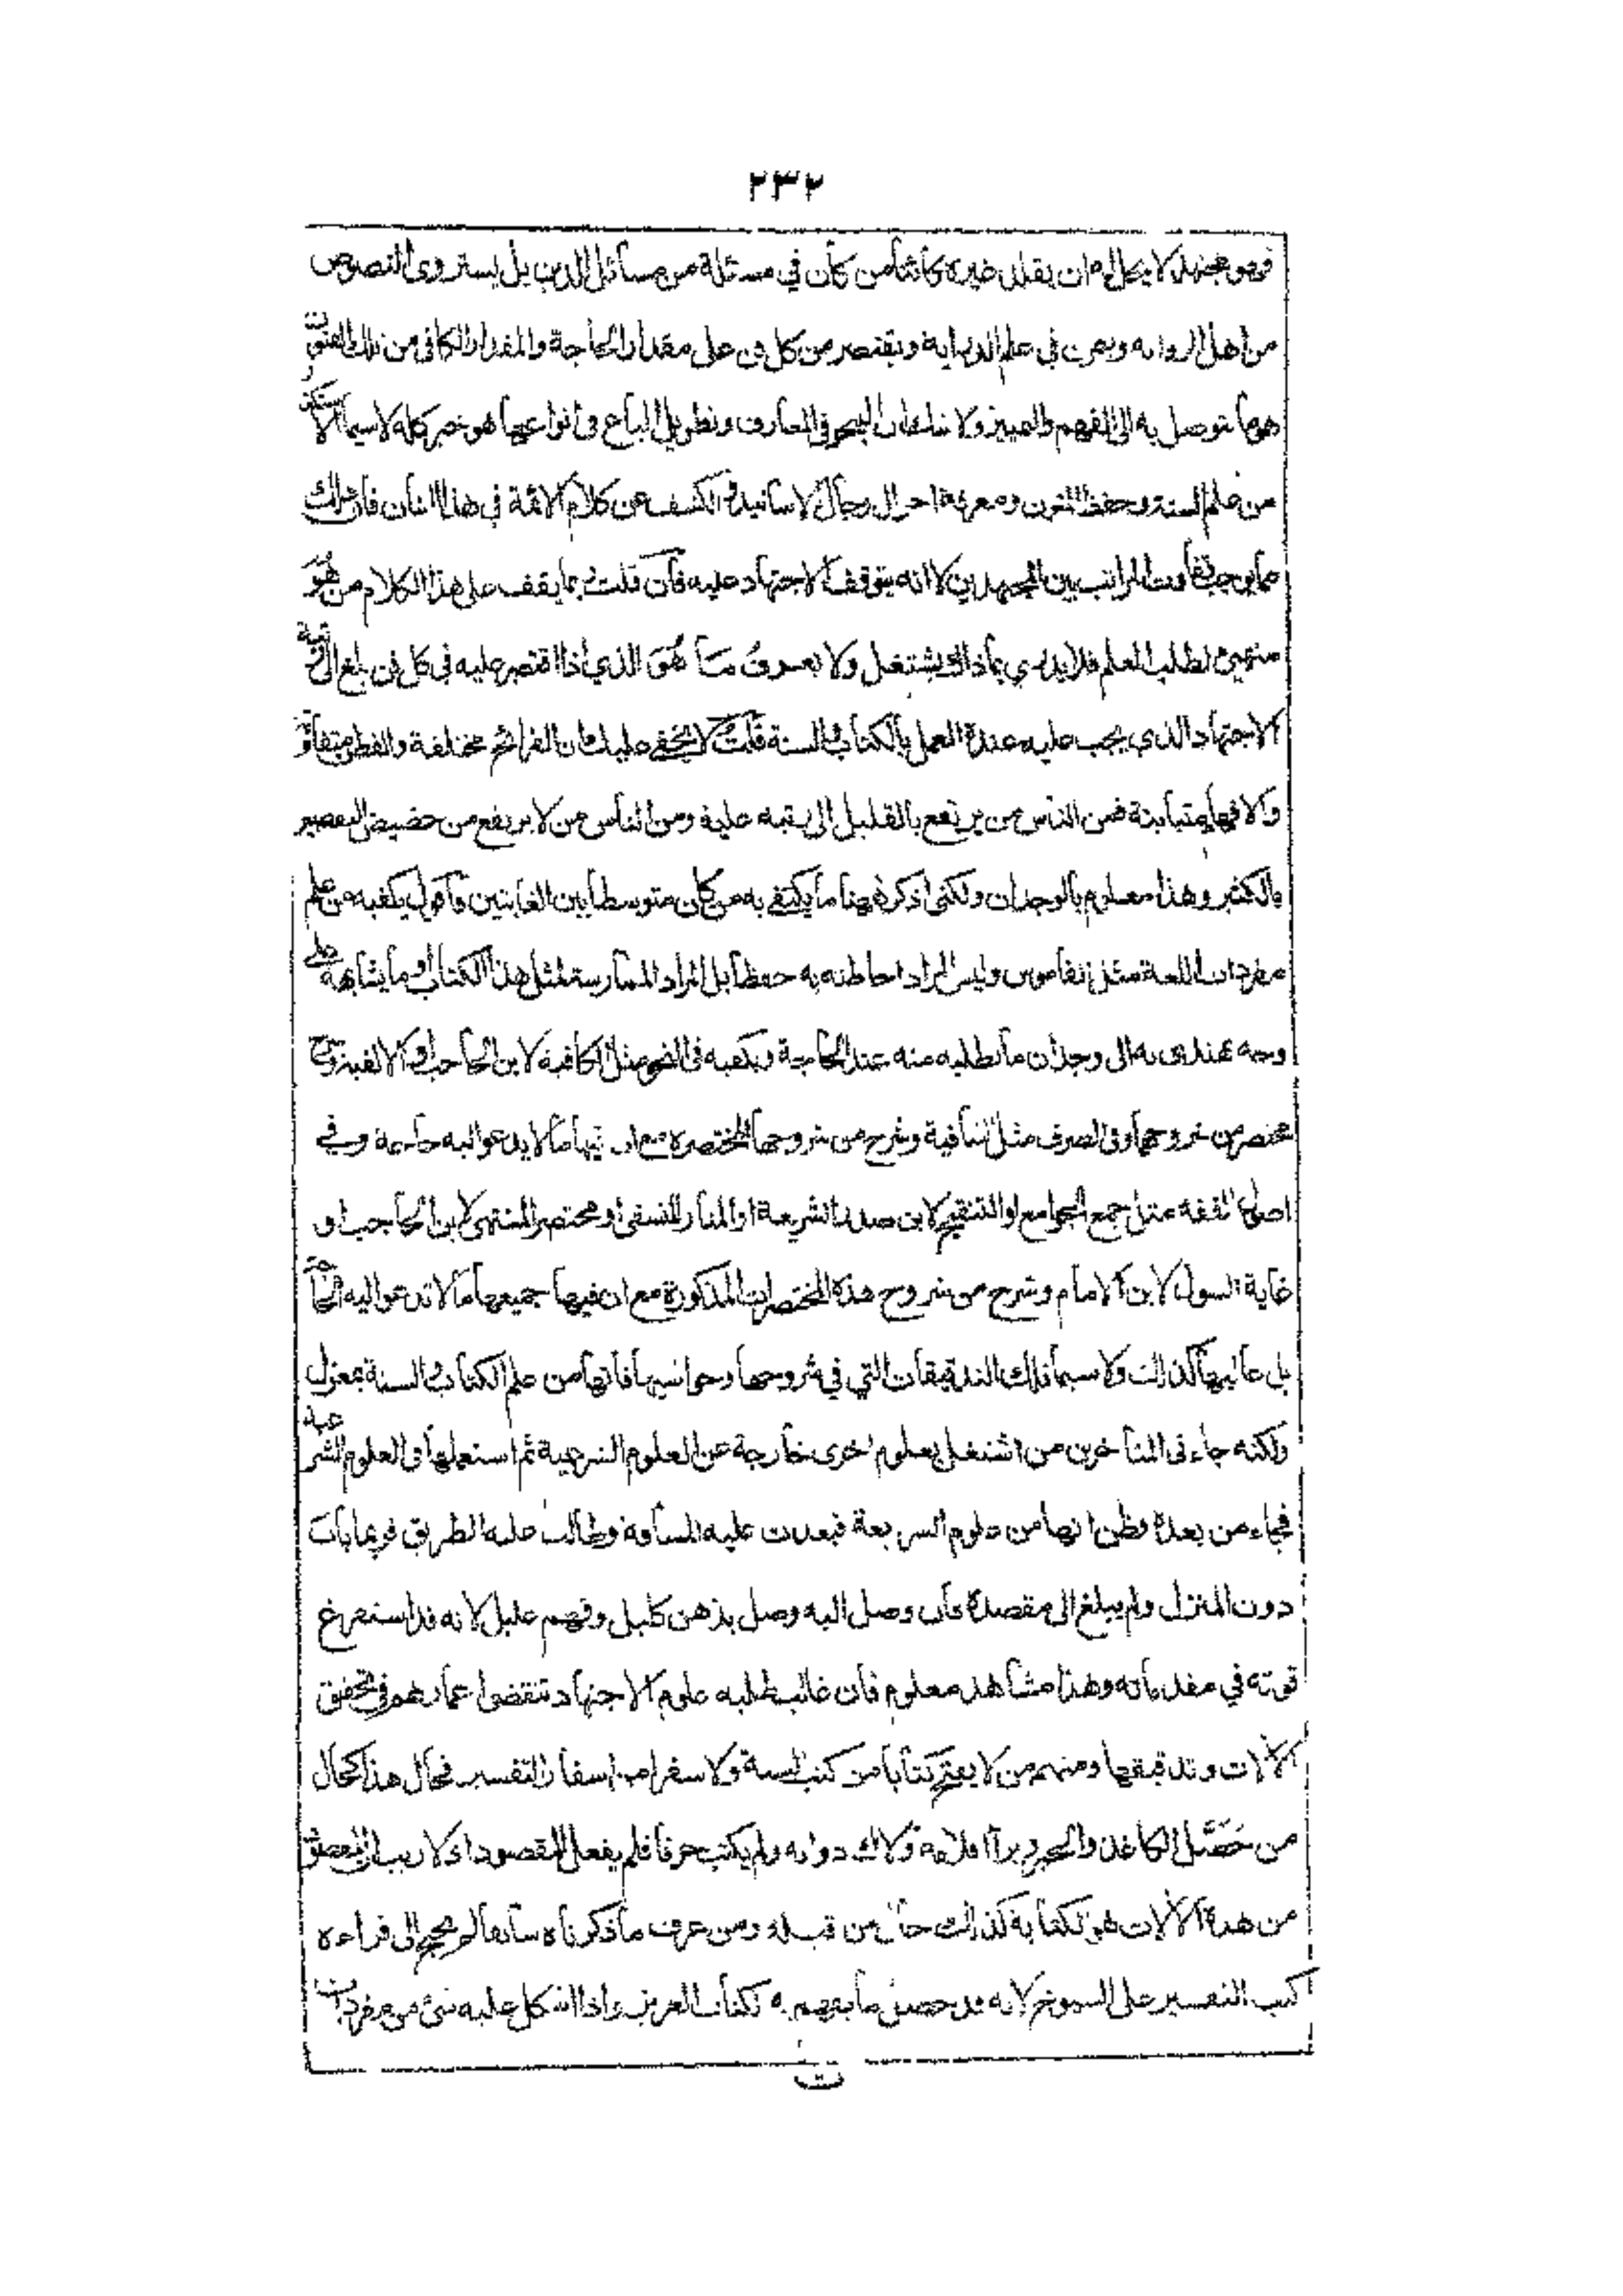 ٢٣٢
فهو مجتهد لا يحل له ان يقلد غيره كائنا من كان في مسئلة من مسائل الدين بل يستروى النصوص
من اهل الروايه ويمرن في علم الدراية ويقتصر من كل فن على مقدار الحاجة والمقدار الكافى من تلك الفنون
هو ما يتوصل به الى الفهم والتمييز ولا شك ان التبحر في المعارف وتطويل الباع في انواعها هو خير كله لا سيما الاستكثار
من علم السنة وحفظ المتون ومعرفة احوال رجال الاسانيد والكشف عن كلام الائمة في هذا الشأن فان ذلك
مما يوجب تفاوت المراتب بين المجتهدين لا انه يتوقف الاجتهاد عليه فان قلت ربما يقف على هذا الكلام من هُوَ
متهيئ لطلب العلم فلا يدرى بماذا يشتغل ولا يعرف ما هُوَ الذي اذا اقتصر عليه في كل فن بلغ الى رتبة
الاجتهاد الذي يجب عليه عنده العمل بالكتاب والسنة قلت لا يخفى عليك ان القرائح مختلفة والفطن متفاوتة
والافهام متباينة فمن الناس من يرتفع بالقليل الى رتبه علية ومن الناس من لا يرتفع من حضيض التقصير
بالكثير وهذا معلوم بالوجدان ولكنى اذكر ههنا ما يكتفى به من كان متوسطا بين الغايتين فاقول يكفيه من علم
مفردات اللغة مثل القاموس وليس المراد احاطته به حفظا بل المراد الممارسة لمثل هذا الكتاب او ما يشابهه على
وجه يهتدى به الى وجدان ما يطلبه منه عند الحاجة ويكفيه فى النحو مثل الكافية لابن الحاجب او الالفية وشرح
مختصر من شروحها وفى الصرف مثل الشافية وشرح من شروحها المختصره مع ان فيها ما لا يدعو اليه حاجه وفي
اصول الفقه مثل جمع الجوامع او التنقيح لابن صدر الشريعة او المنار للنسفى او مختصر المنتهى لابن الحاجب او
غاية السول لابن الامام وشرح من شروح هذه المختصرات المذكورة مع ان فيها جميعها ما لا تدعو اليه الحاجة
بل غالبها كذلك ولا سيما تلك التدقيقات التي في شروحها وحواشيها فانها من علم الكتاب والسنة بمعزل
ولكنه جاء فى المتأخرين من اشتغل بعلوم اخرى خارجة عن العلوم الشرعية ثم استعملها فى العلوم الشرعية
فجاء من بعده وظن انها من علوم الشريعة فبعدت عليه المسافة وطالت عليه الطريق فربما بات
دون المنزل ولم يبلغ الى مقصده فان وصل اليه وصل بذهن كليل وفهم عليل لانه قد استفرغ
قوته في مقدماته وهذا مشاهد معلوم فان غالب طلبه علوم الاجتهاد تنقضى اعمارهم في تحقيق
الآلات وتدقيقها ومنهم من لا يفتح كتابا من كتب السنة ولا سفرا من اسفار التفسير فحال هذا كحال
من حَصَّل الكاغذ والحبر وبرأ اقلامه ولاك دواته ولم يكتب حرفا فلم يفعل المقصود اذ لا ريب ان المقصود
من هذه الآلات هو الكتابة كذلك حال من قبله ومن عرف ما ذكرناه سابقا لم يحتج الى قراءه
كتب التفسير على الشيوخ لانه قد حصل ما يفهم به الكتاب العزيز واذا اشكل عليه شئ من مفردات